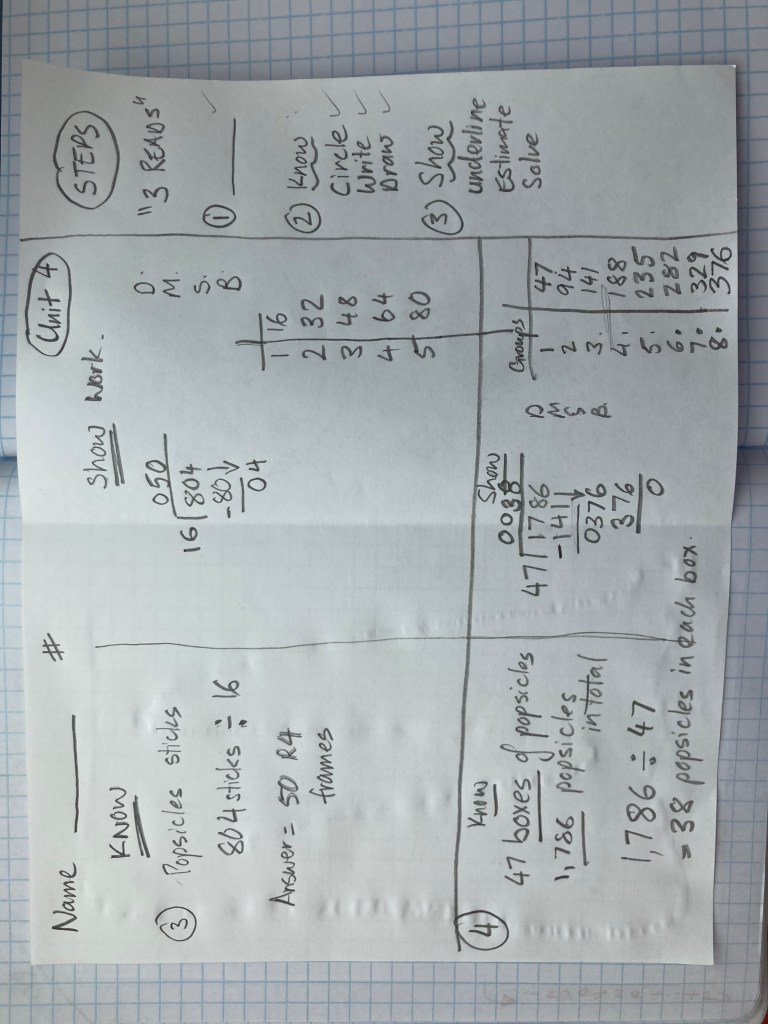 Name ______ #
Unit 4
KNOW
③ Popsicles sticks
804 sticks ÷ 16
Answer = 50 R4
frames
Show work.
050
16 804
-80↓
04
D.
M.
S.
B.
1 16
2 32
3 48
4 64
5 80
STEPS
"3 READS"
① ______ ✓
② Know
Circle ✓
Write ✓
Draw ✓
③ Show
underline
Estimate
Solve
④ Know
47 boxes of popsicles
1,786 popsicles
in total
1,786 ÷ 47
= 38 popsicles in each box.
Show
0038
47 1786
-141↓
0376
376
0
D
M
S
B.
Groups
1 47
2 94
3. 141
4. 188
5. 235
6. 282
7. 329
8. 376